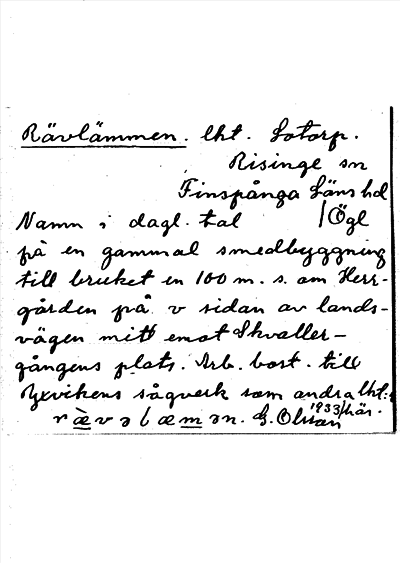 Rävlämmen. lht. Lotorp.
Risinge sn
Finspånga Läns hd
Namn i dagl. tal /Ögl
på en gammal smedbyggning
till bruket en 100 m. s. om Herr-
gården på v sidan av lands-
vägen mitt emot Skvaller-
gångens plats. Arb. bost. till
Yxvikens sågverk som andra lht:s
rævəlæmən. G. Olsson 1933/här.